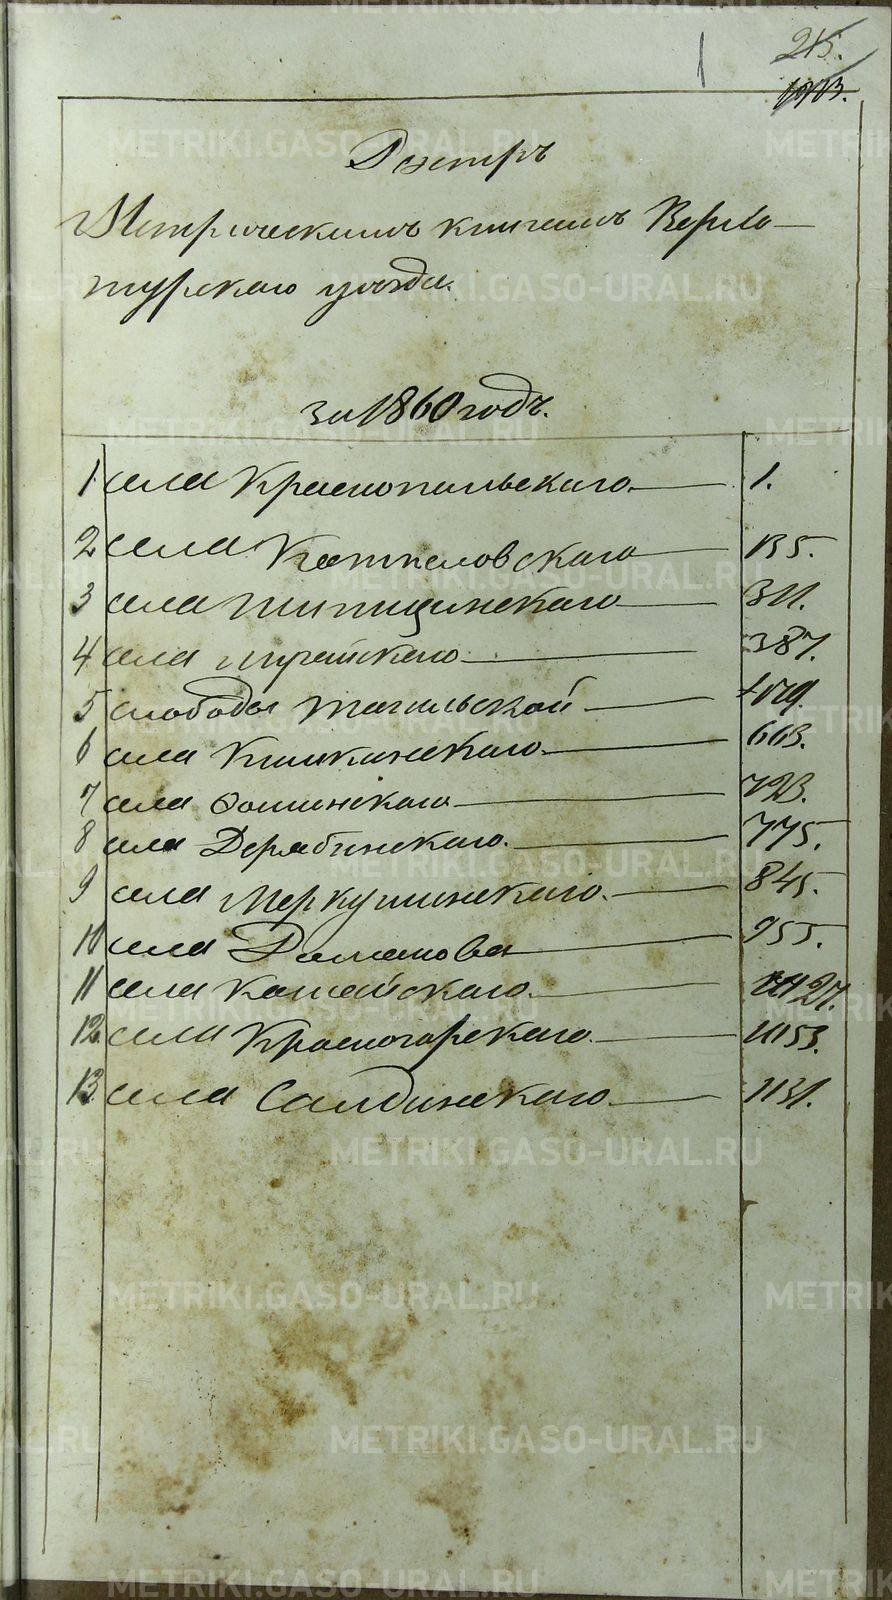 1
215.
Реэстръ
Метрическимъ книгамъ Верхо-
турскаго уѣзда.
за 1860 годъ.
1 села Краснопольскаго 1.
2 села Кетковскаго 135.
3 села Топицинскаго 311.
4 села Мурайскаго 387.
5 слободы Тагильской
6 села Кишкинскаго 663.
7 села Фоминскаго 723.
8 села Дерябинскаго. 775.
9 села Меркушинскаго. 845.
10 села Романова 955.
11 села Кошайскаго 27.
12 села Красногорскаго 1053.
13 села Салдинскаго 1131.
METRIKI.GASO-URAL.RU